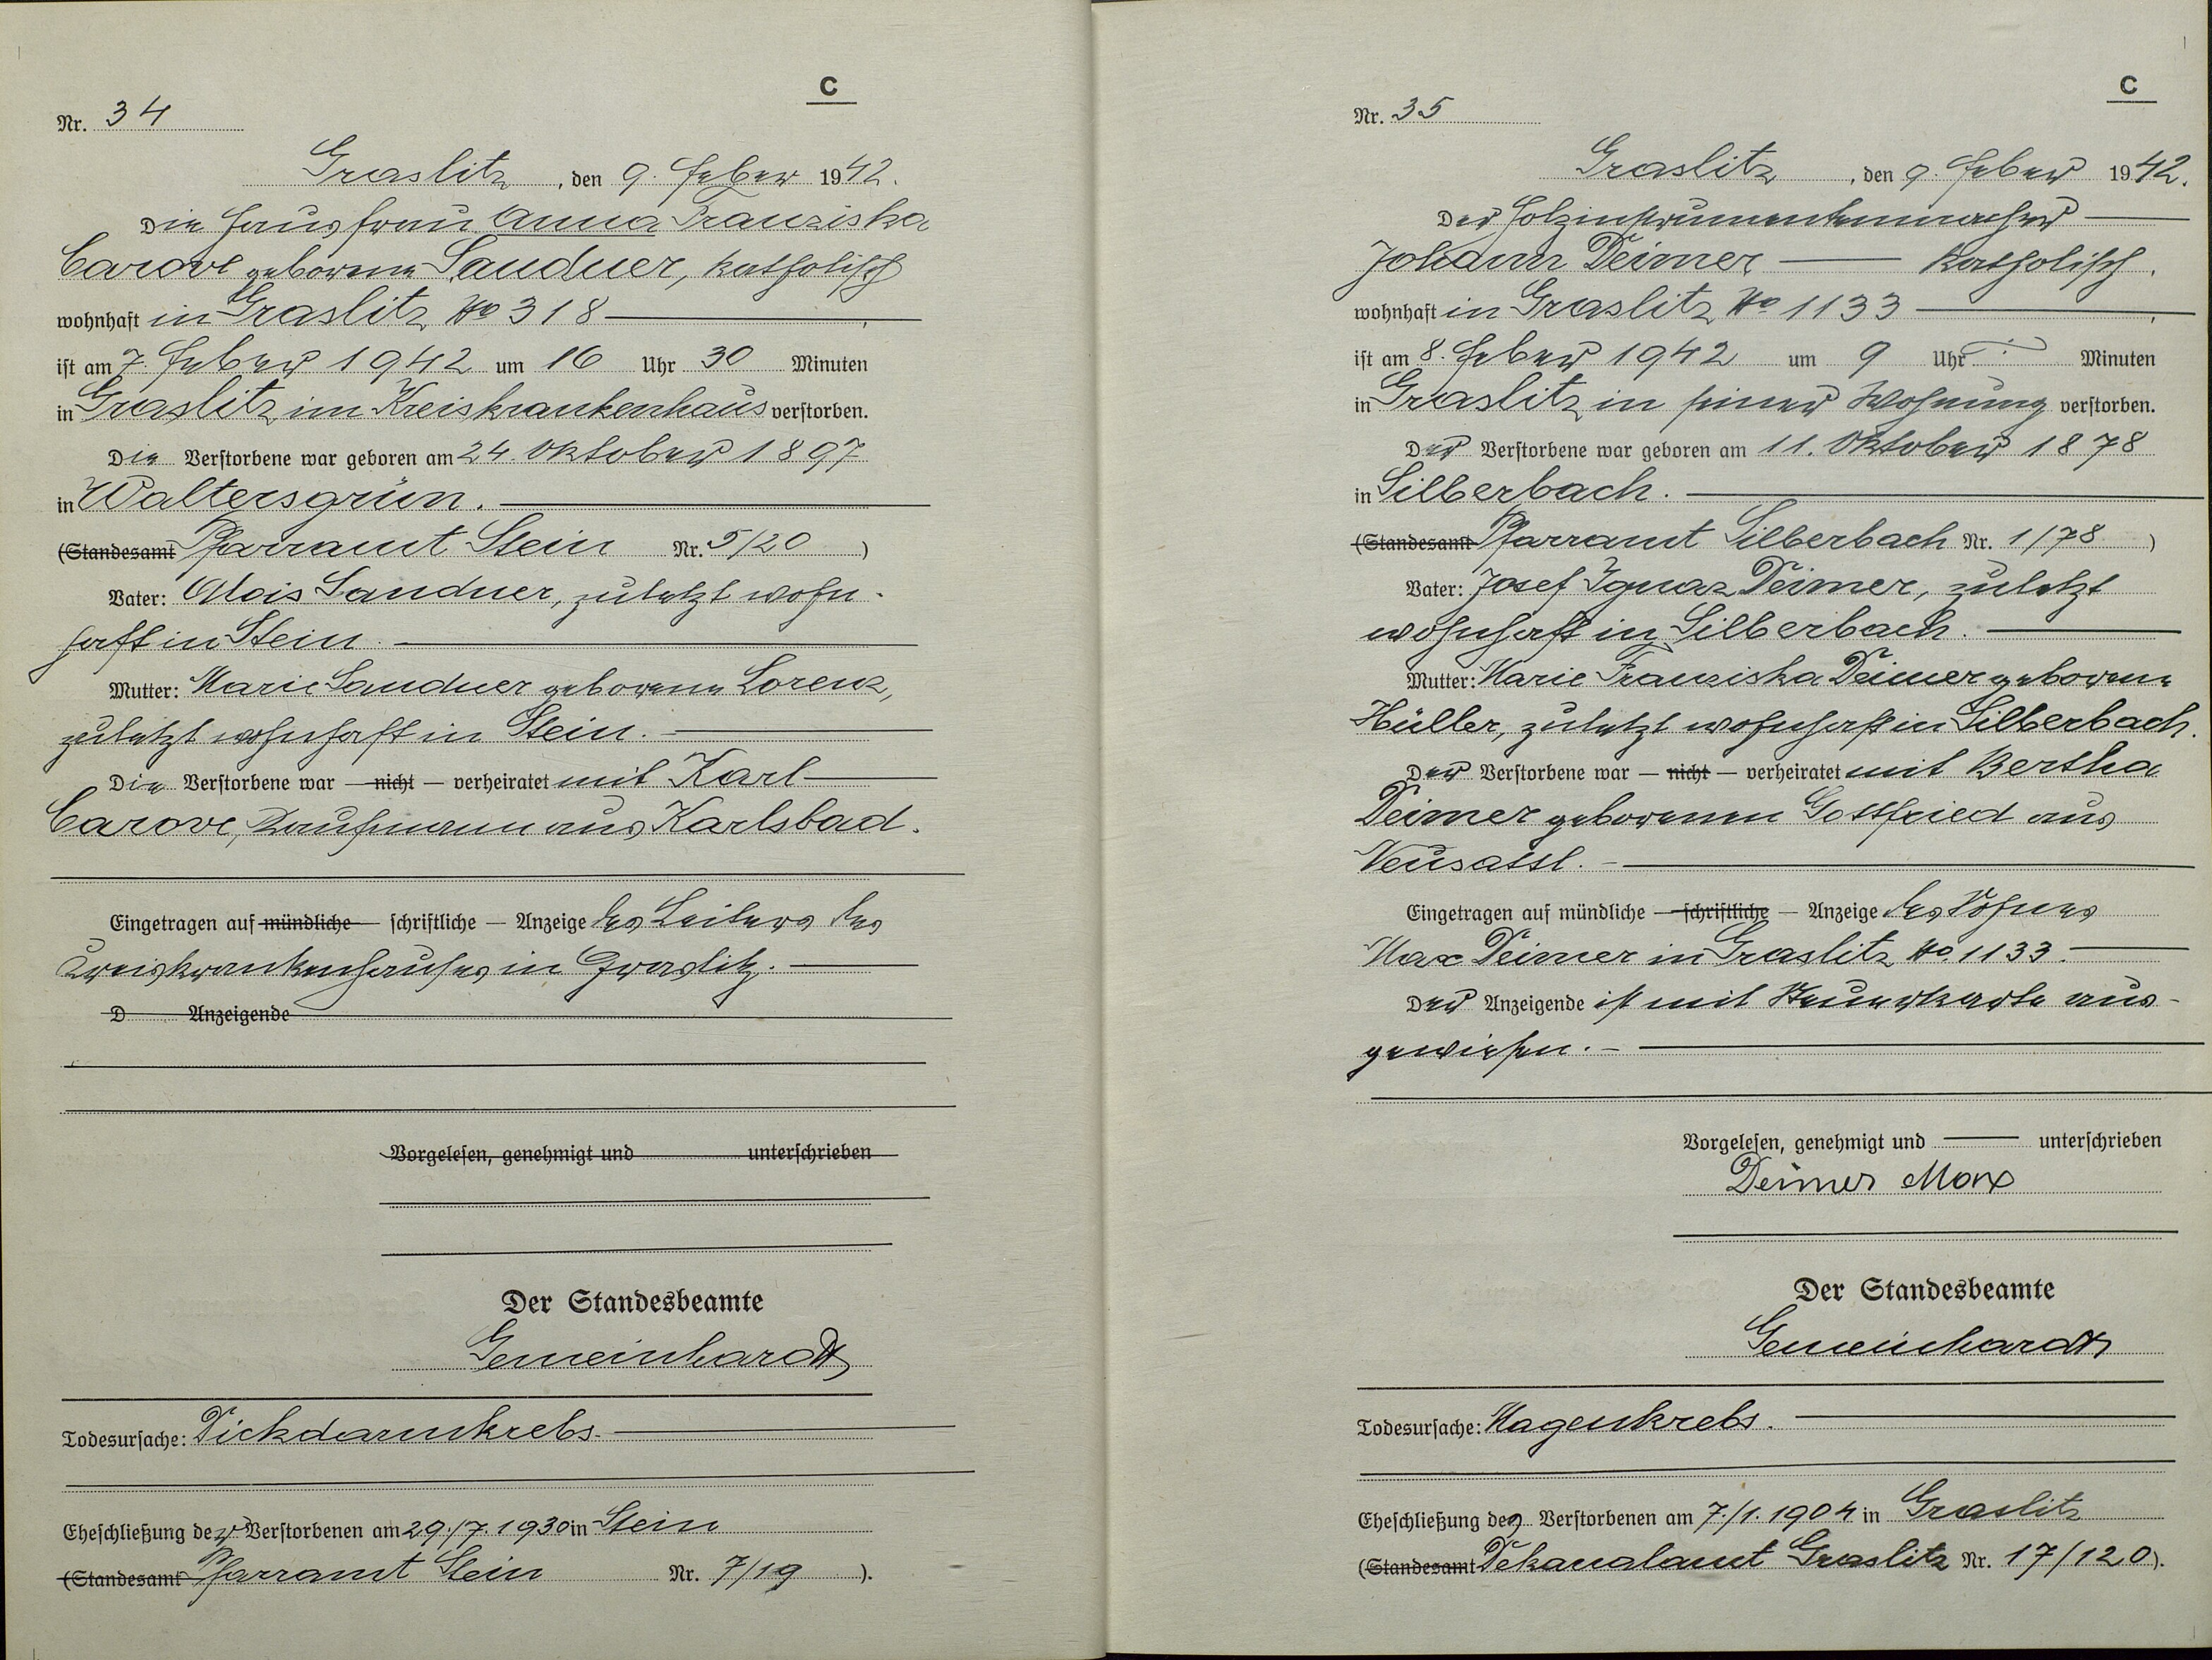 C
Nr. 34
Graslitz, den 9. Feber 1942.
Die Hausfrau Anna Franziska
Carove geborene Sandner, katholisch
wohnhaft in Graslitz No 318
ist am 7. Feber 1942 um 16 Uhr 30 Minuten
in Graslitz im Kreiskrankenhaus verstorben.
Die Verstorbene war geboren am 24. Oktober 1897
in Waltersgrün.
(Standesamt Pfarramt Stein Nr. 5/20)
Vater: Alois Sandner, zuletzt wohn-
haft in Stein.
Mutter: Marie Sandner geborene Lorenz,
zuletzt wohnhaft in Stein.
Die Verstorbene war — nicht — verheiratet mit Karl
Carove, Kaufmann aus Karlsbad.
Eingetragen auf mündliche — schriftliche — Anzeige des Leiters des
Kreiskrankenhauses in Graslitz.
D Anzeigende
Vorgelesen, genehmigt und unterschrieben
Der Standesbeamte
Gemeinhardt
Todesursache: Dickdarmkrebs.
Eheschließung der Verstorbenen am 29./7. 1930 in Stein
(Standesamt Pfarramt Stein Nr. 7/19).
C
Nr. 35
Graslitz, den 9. Feber 1942.
Der Holzinstrumentenmacher
Johann Deimer — katholisch,
wohnhaft in Graslitz No 1133,
ist am 8. Feber 1942 um 9 Uhr Minuten
in Graslitz in seiner Wohnung verstorben.
Der Verstorbene war geboren am 11. Oktober 1878
in Silberbach.
(Standesamt Pfarramt Silberbach Nr. 1/78)
Vater: Josef Ignaz Deimer, zuletzt
wohnhaft in Silberbach.
Mutter: Marie Franziska Deimer geborene
Hüller, zuletzt wohnhaft in Silberbach.
Der Verstorbene war — nicht — verheiratet mit Bertha
Deimer geborenen Gottfried aus
Neusattl.
Eingetragen auf mündliche — schriftliche — Anzeige des Sohnes
Max Deimer in Graslitz No 1133.
Der Anzeigende ist mit Steuerkarte aus-
gewiesen.
Vorgelesen, genehmigt und — unterschrieben
Deimer Max
Der Standesbeamte
Gemeinhardt
Todesursache: Magenkrebs.
Eheschließung des Verstorbenen am 7./1. 1904 in Graslitz
(Standesamt Dekanalamt Graslitz Nr. 17/120).